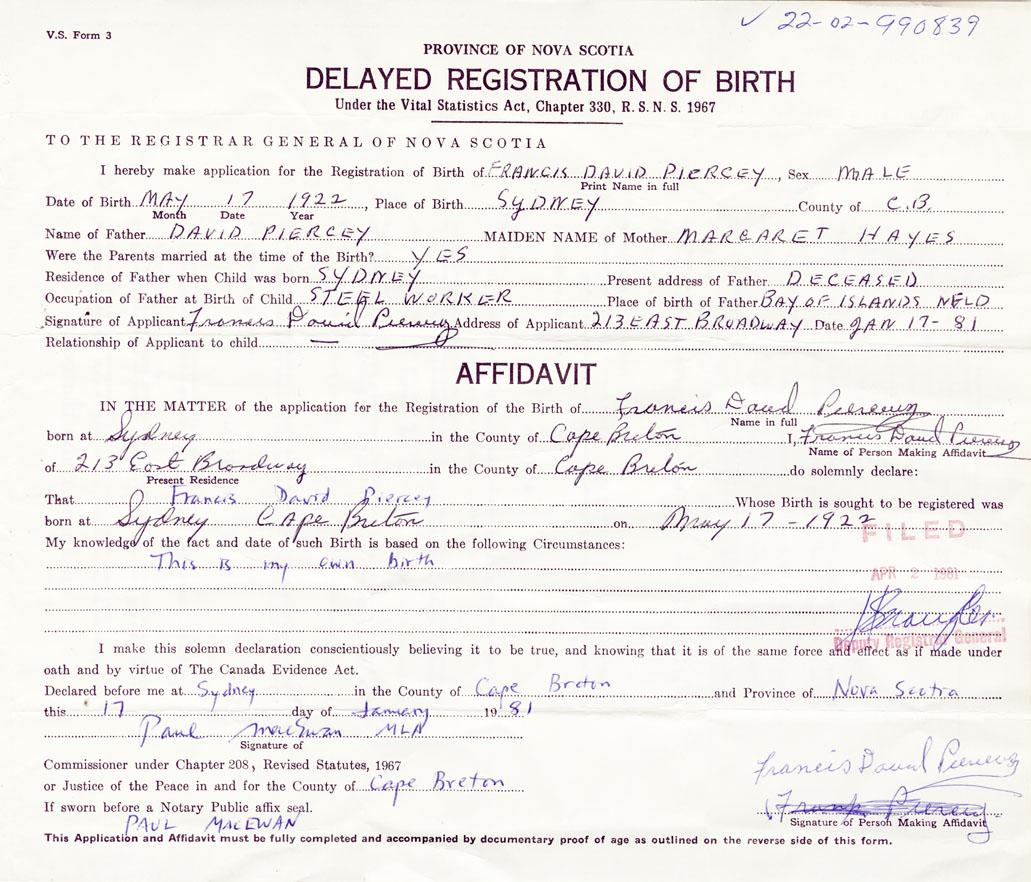 ✓ 22-02-990839
V.S. Form 3
PROVINCE OF NOVA SCOTIA
DELAYED REGISTRATION OF BIRTH
Under the Vital Statistics Act, Chapter 330, R.S.N.S. 1967
TO THE REGISTRAR GENERAL OF NOVA SCOTIA
I hereby make application for the Registration of Birth of FRANCIS DAVID PIERCEY, Sex MALE
Print Name in full
Date of Birth MAY 17 1922, Place of Birth SYDNEY County of C.B.
Month Date Year
Name of Father DAVID PIERCEY MAIDEN NAME of Mother MARGARET HAYES
Were the Parents married at the time of the Birth? YES
Residence of Father when Child was born SYDNEY Present address of Father DECEASED
Occupation of Father at Birth of Child STEEL WORKER Place of birth of Father BAY OF ISLANDS NFLD
Signature of Applicant Francis David Piercey Address of Applicant 213 EAST BROADWAY Date JAN 17-81
Relationship of Applicant to child —
AFFIDAVIT
IN THE MATTER of the application for the Registration of the Birth of Francis David Piercey
Name in full
born at Sydney in the County of Cape Breton I, Francis David Piercey
Name of Person Making Affidavit
of 213 East Broadway in the County of Cape Breton do solemnly declare:
Present Residence
That Francis David Piercey Whose Birth is sought to be registered was
born at Sydney Cape Breton on May 17-1922
FILED
My knowledge of the fact and date of such Birth is based on the following Circumstances:
This is my own birth
APR 2 1981
Deputy Registrar General
I make this solemn declaration conscientiously believing it to be true, and knowing that it is of the same force and effect as if made under
oath and by virtue of The Canada Evidence Act.
Declared before me at Sydney in the County of Cape Breton and Province of Nova Scotia
this 17 day of January 1981
Paul MacEwan MLA
Signature of
Commissioner under Chapter 208, Revised Statutes, 1967
Francis David Piercey
or Justice of the Peace in and for the County of Cape Breton
If sworn before a Notary Public affix seal.
Frank Piercey
PAUL MACEWAN
Signature of Person Making Affidavit
This Application and Affidavit must be fully completed and accompanied by documentary proof of age as outlined on the reverse side of this form.